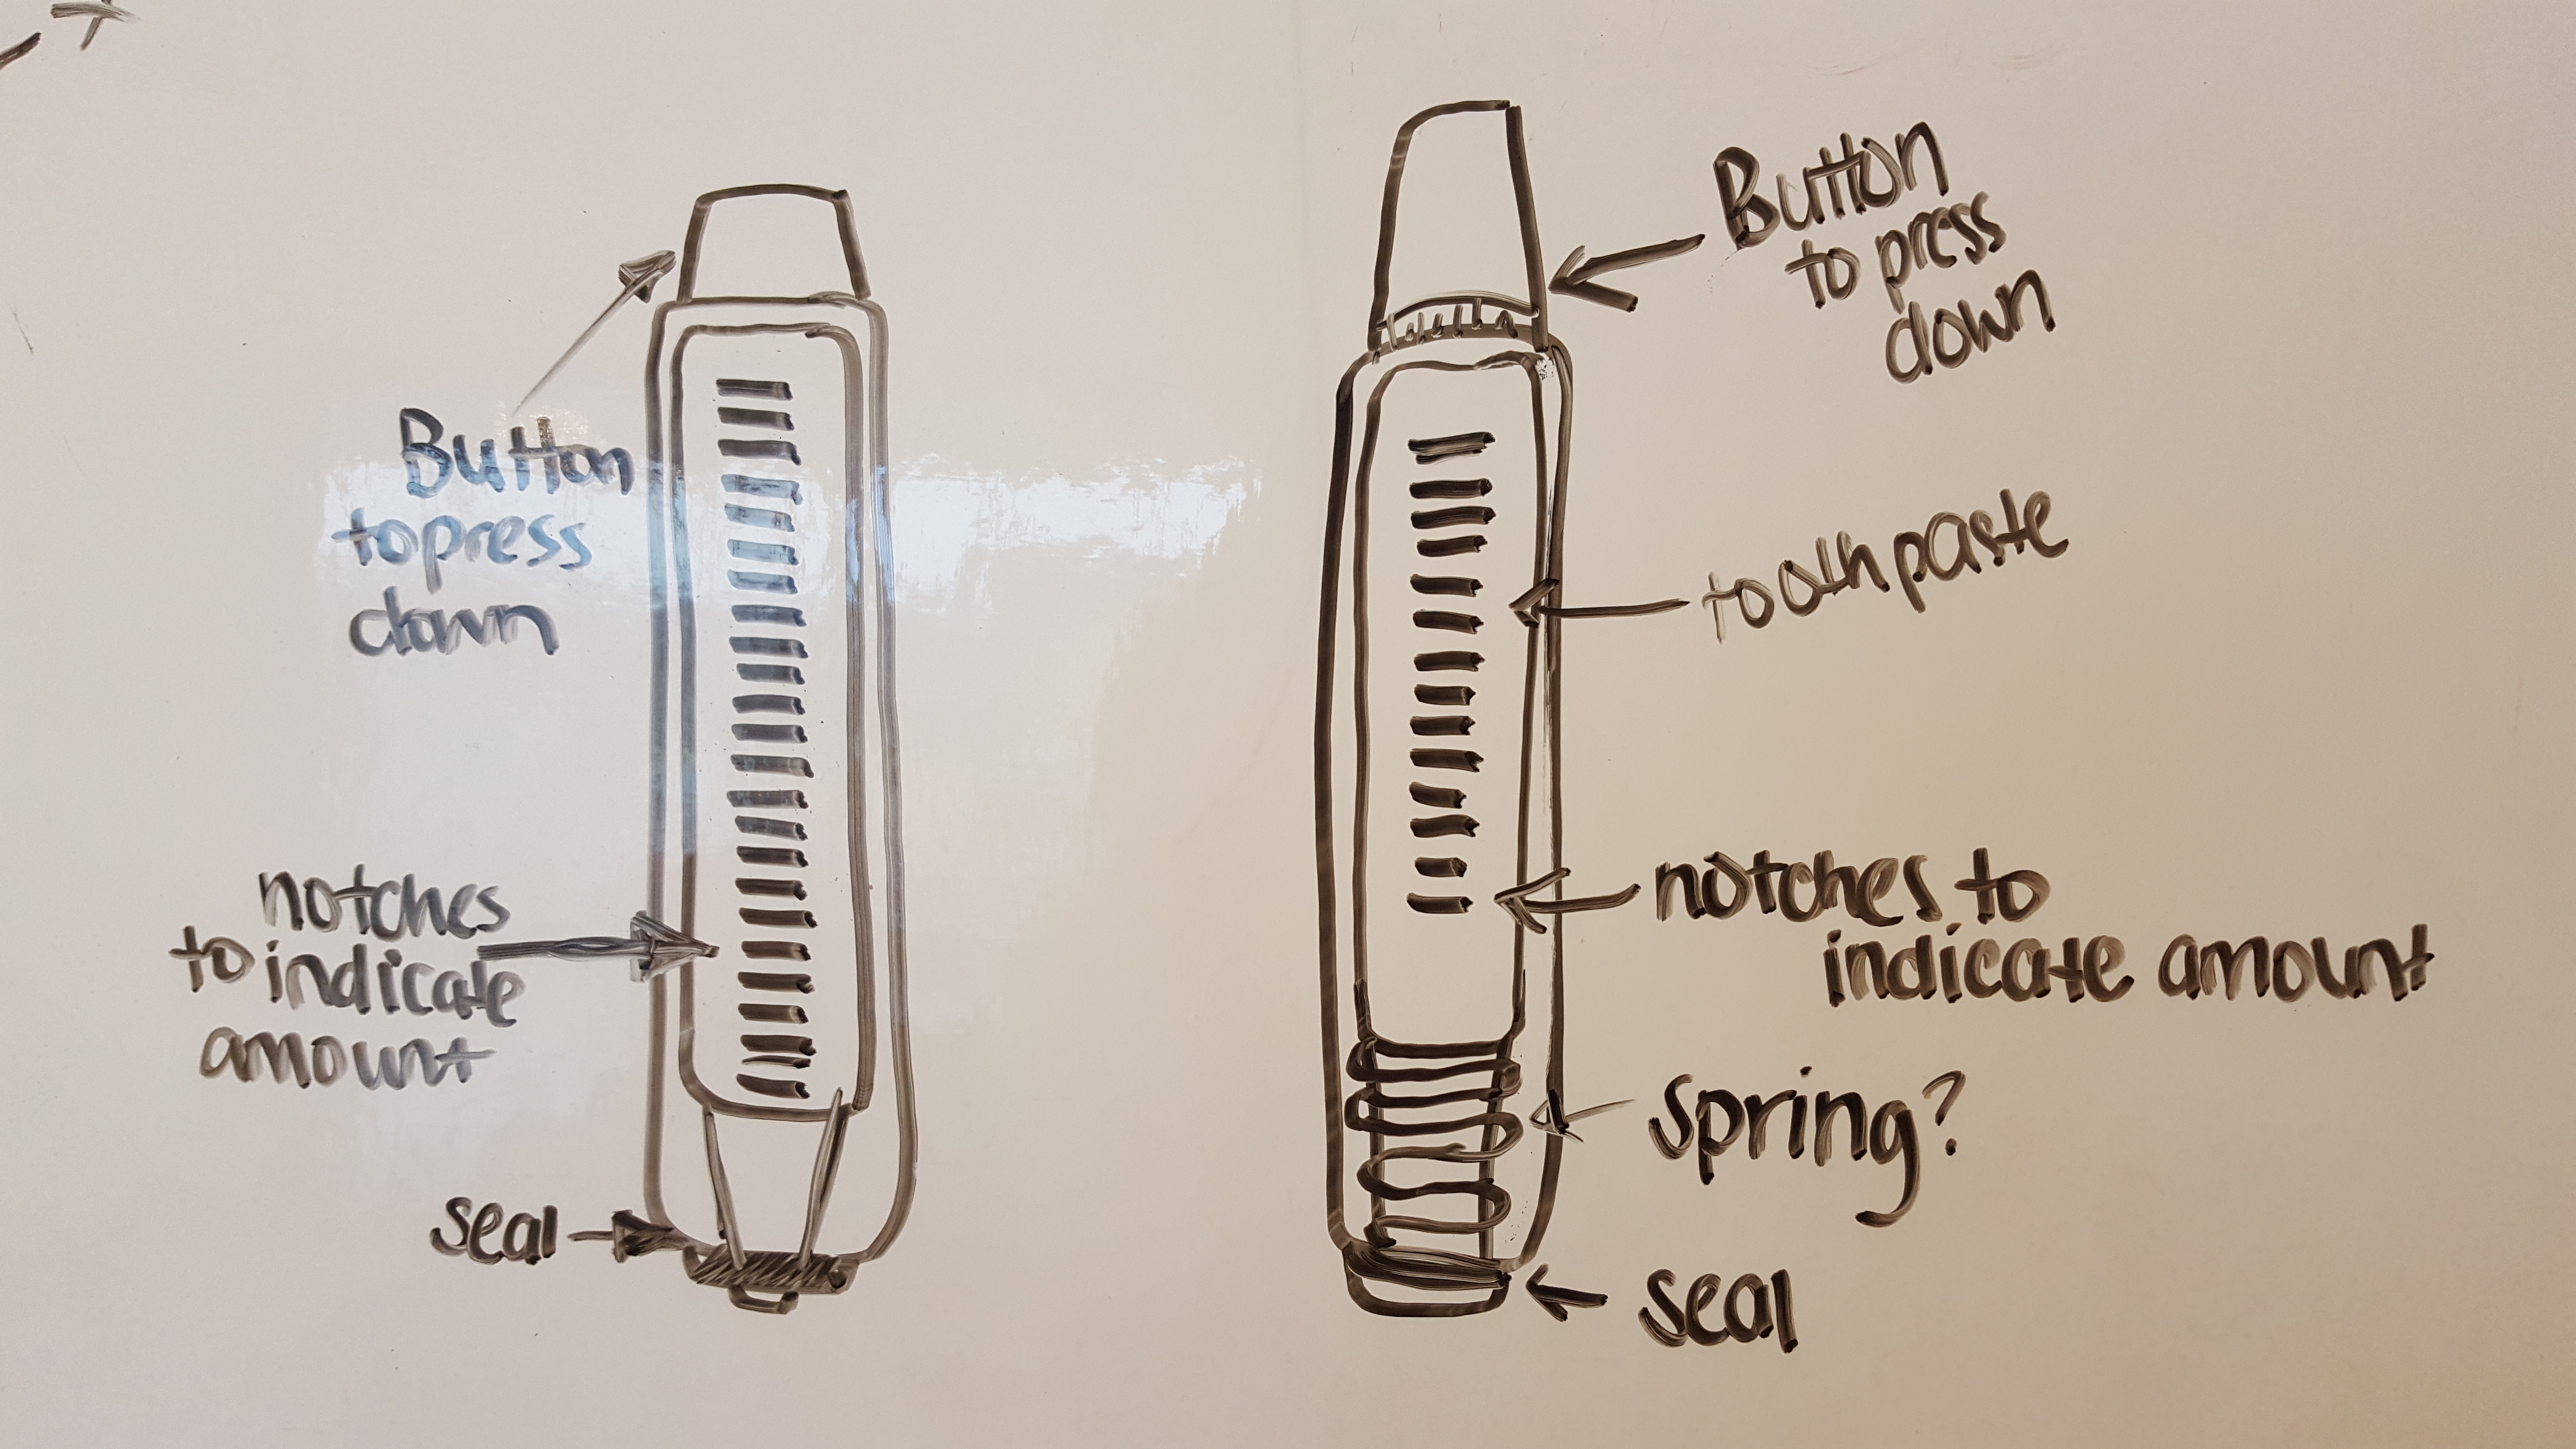 Button
to press
down
notches
to indicate
amount
seal
Button
to press
down
toothpaste
notches to
indicate amount
spring?
seal